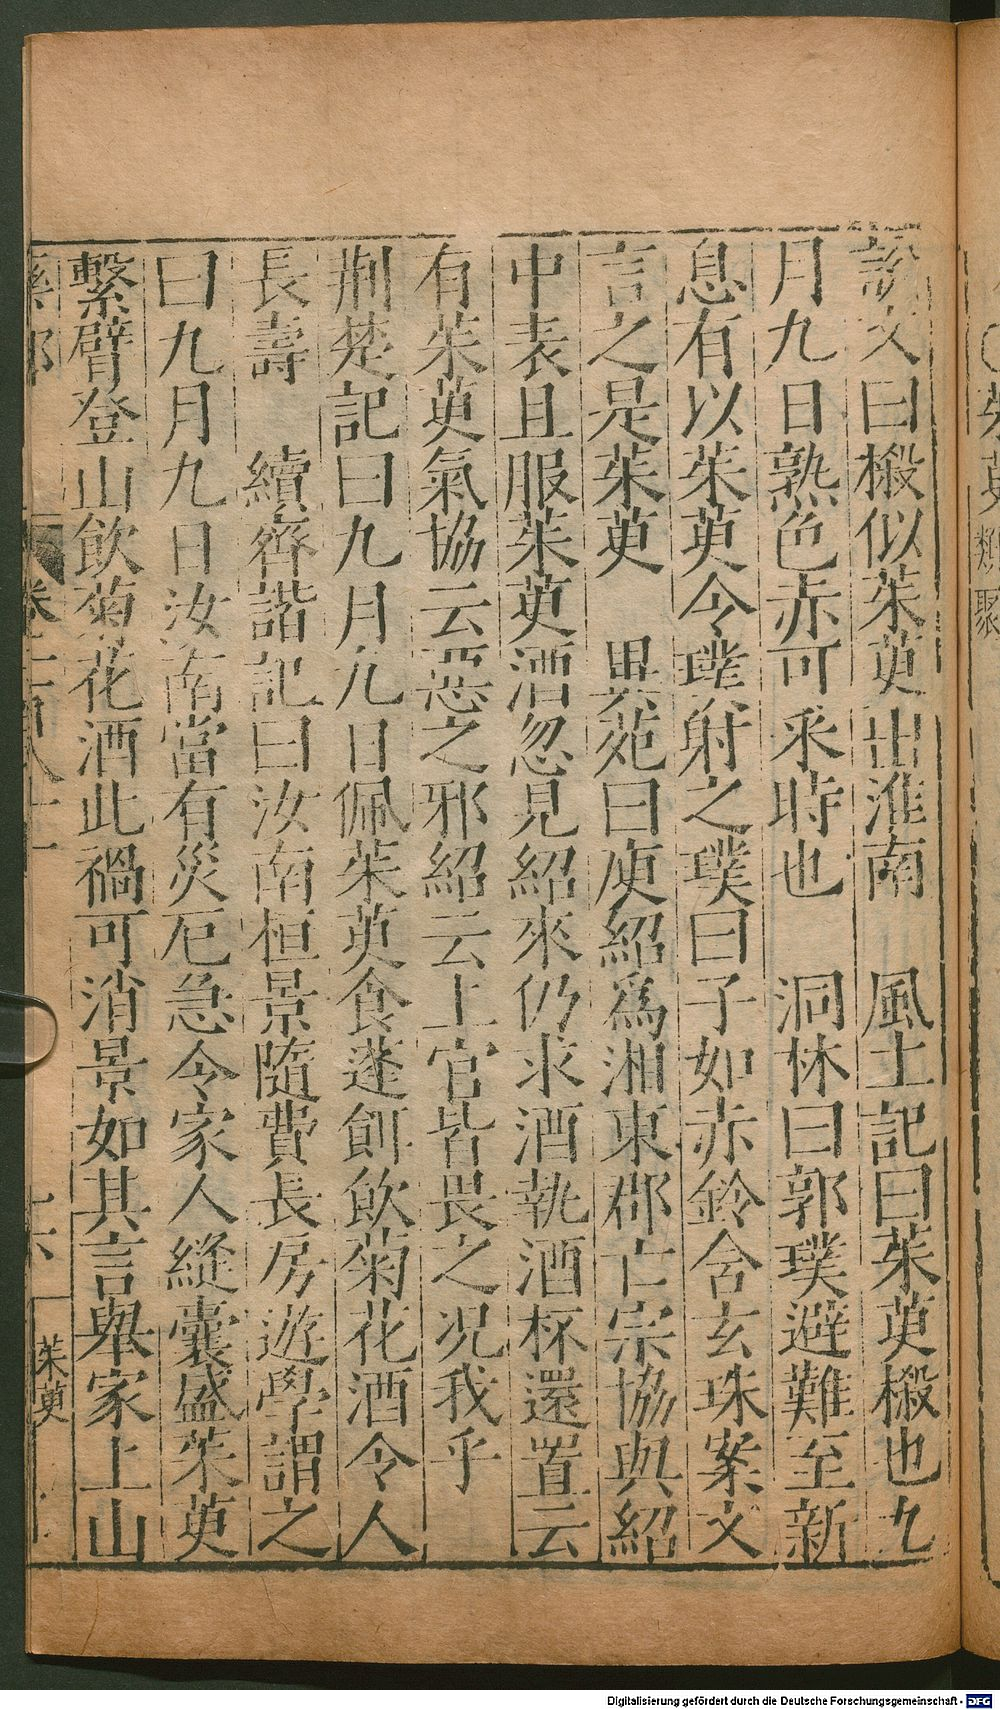 說文曰樧似茱萸出淮南　風土記曰茱萸樧也九
月九日熟色赤可采時也　洞林曰郭璞避難至新
息有以茱萸令璞射之璞曰子如赤鈴含玄珠案文
言之是茱萸　異苑曰庾紹為湘東郡亡宗協與紹
中表且服茱萸酒忽見紹來仍求酒執酒杯還置云
有茱萸氣協云惡之邪紹云上官皆畏之况我乎
荆楚記曰九月九日佩茱萸食蓬餌飲菊花酒令人
長壽　續齊諧記曰汝南桓景隨費長房遊學謂之
曰九月九日汝南當有災厄急令家人縫囊盛茱萸
繫臂登山飲菊花酒此禍可消景如其言舉家上山
茱萸
茱萸
類聚
Digitalisierung gefördert durch die Deutsche Forschungsgemeinschaft - DFG